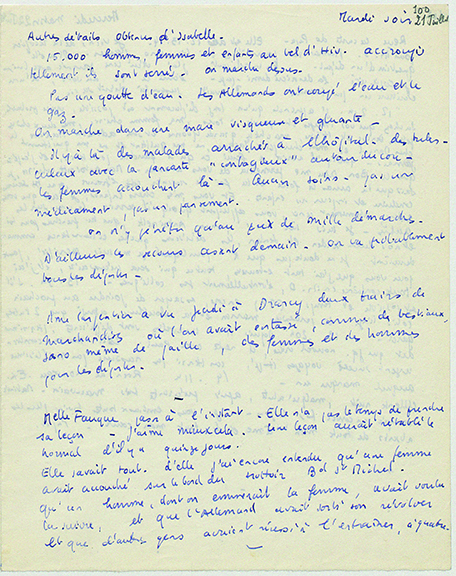 100
Mardi soir 21 Juillet
Autres détails obtenus d'Isabelle.
15.000 hommes, femmes et enfants au vel d'Hiv. accroupis
tellement ils sont serrés. on marche dessus.
Pas une goutte d'eau. Les Allemands ont coupé l'eau et le
gaz.
On marche dans une mare visqueuse et gluante -
il y a là des malades arrachés à l'hôpital. des tuber-
culeux avec la pancarte "contagieux" autour du cou -
les femmes accouchent là - Aucun soins - pas un
médicament, pas un pansement.
on n'y pénètre qu'au prix de mille démarches.
D'ailleurs les secours cessent demain. On va probablement
tous les déporter -
Mme Carpentier a vu jeudi à Drancy deux trains de
marchandises où l'on avait entassé, comme des bestiaux,
sans même de paille, des femmes et des hommes
pour les déporter.
Melle Fauque passa à l'instant. Elle n'a pas le temps de prendre
sa leçon - j'aime mieux cela. Une leçon aurait rétabli le
normal d'il y a quinze jours.
Elle savait tout. d'elle, j'ai encore entendu qu'une femme
avait accouché sur le bord du trottoir Bd St Michel.
qu'un homme, dont on emmenait la femme, avait voulu
la suivre, et que l'Allemand avait sorti son révolver
et que d'autres gens avaient réussi à l'entraîner, à quatre.